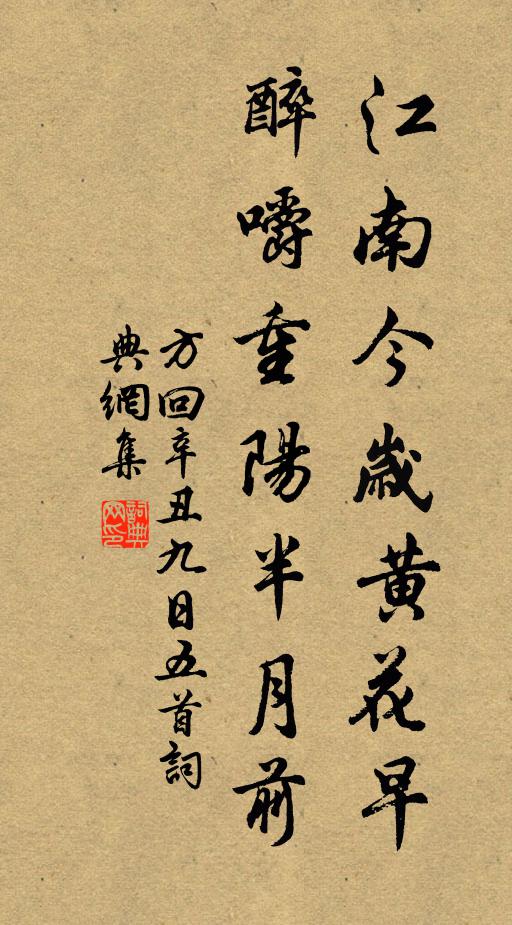 江南今歲黄花早
醉嚼重陽半月前
方回辛丑九日五首詞
典網集
詞典網印